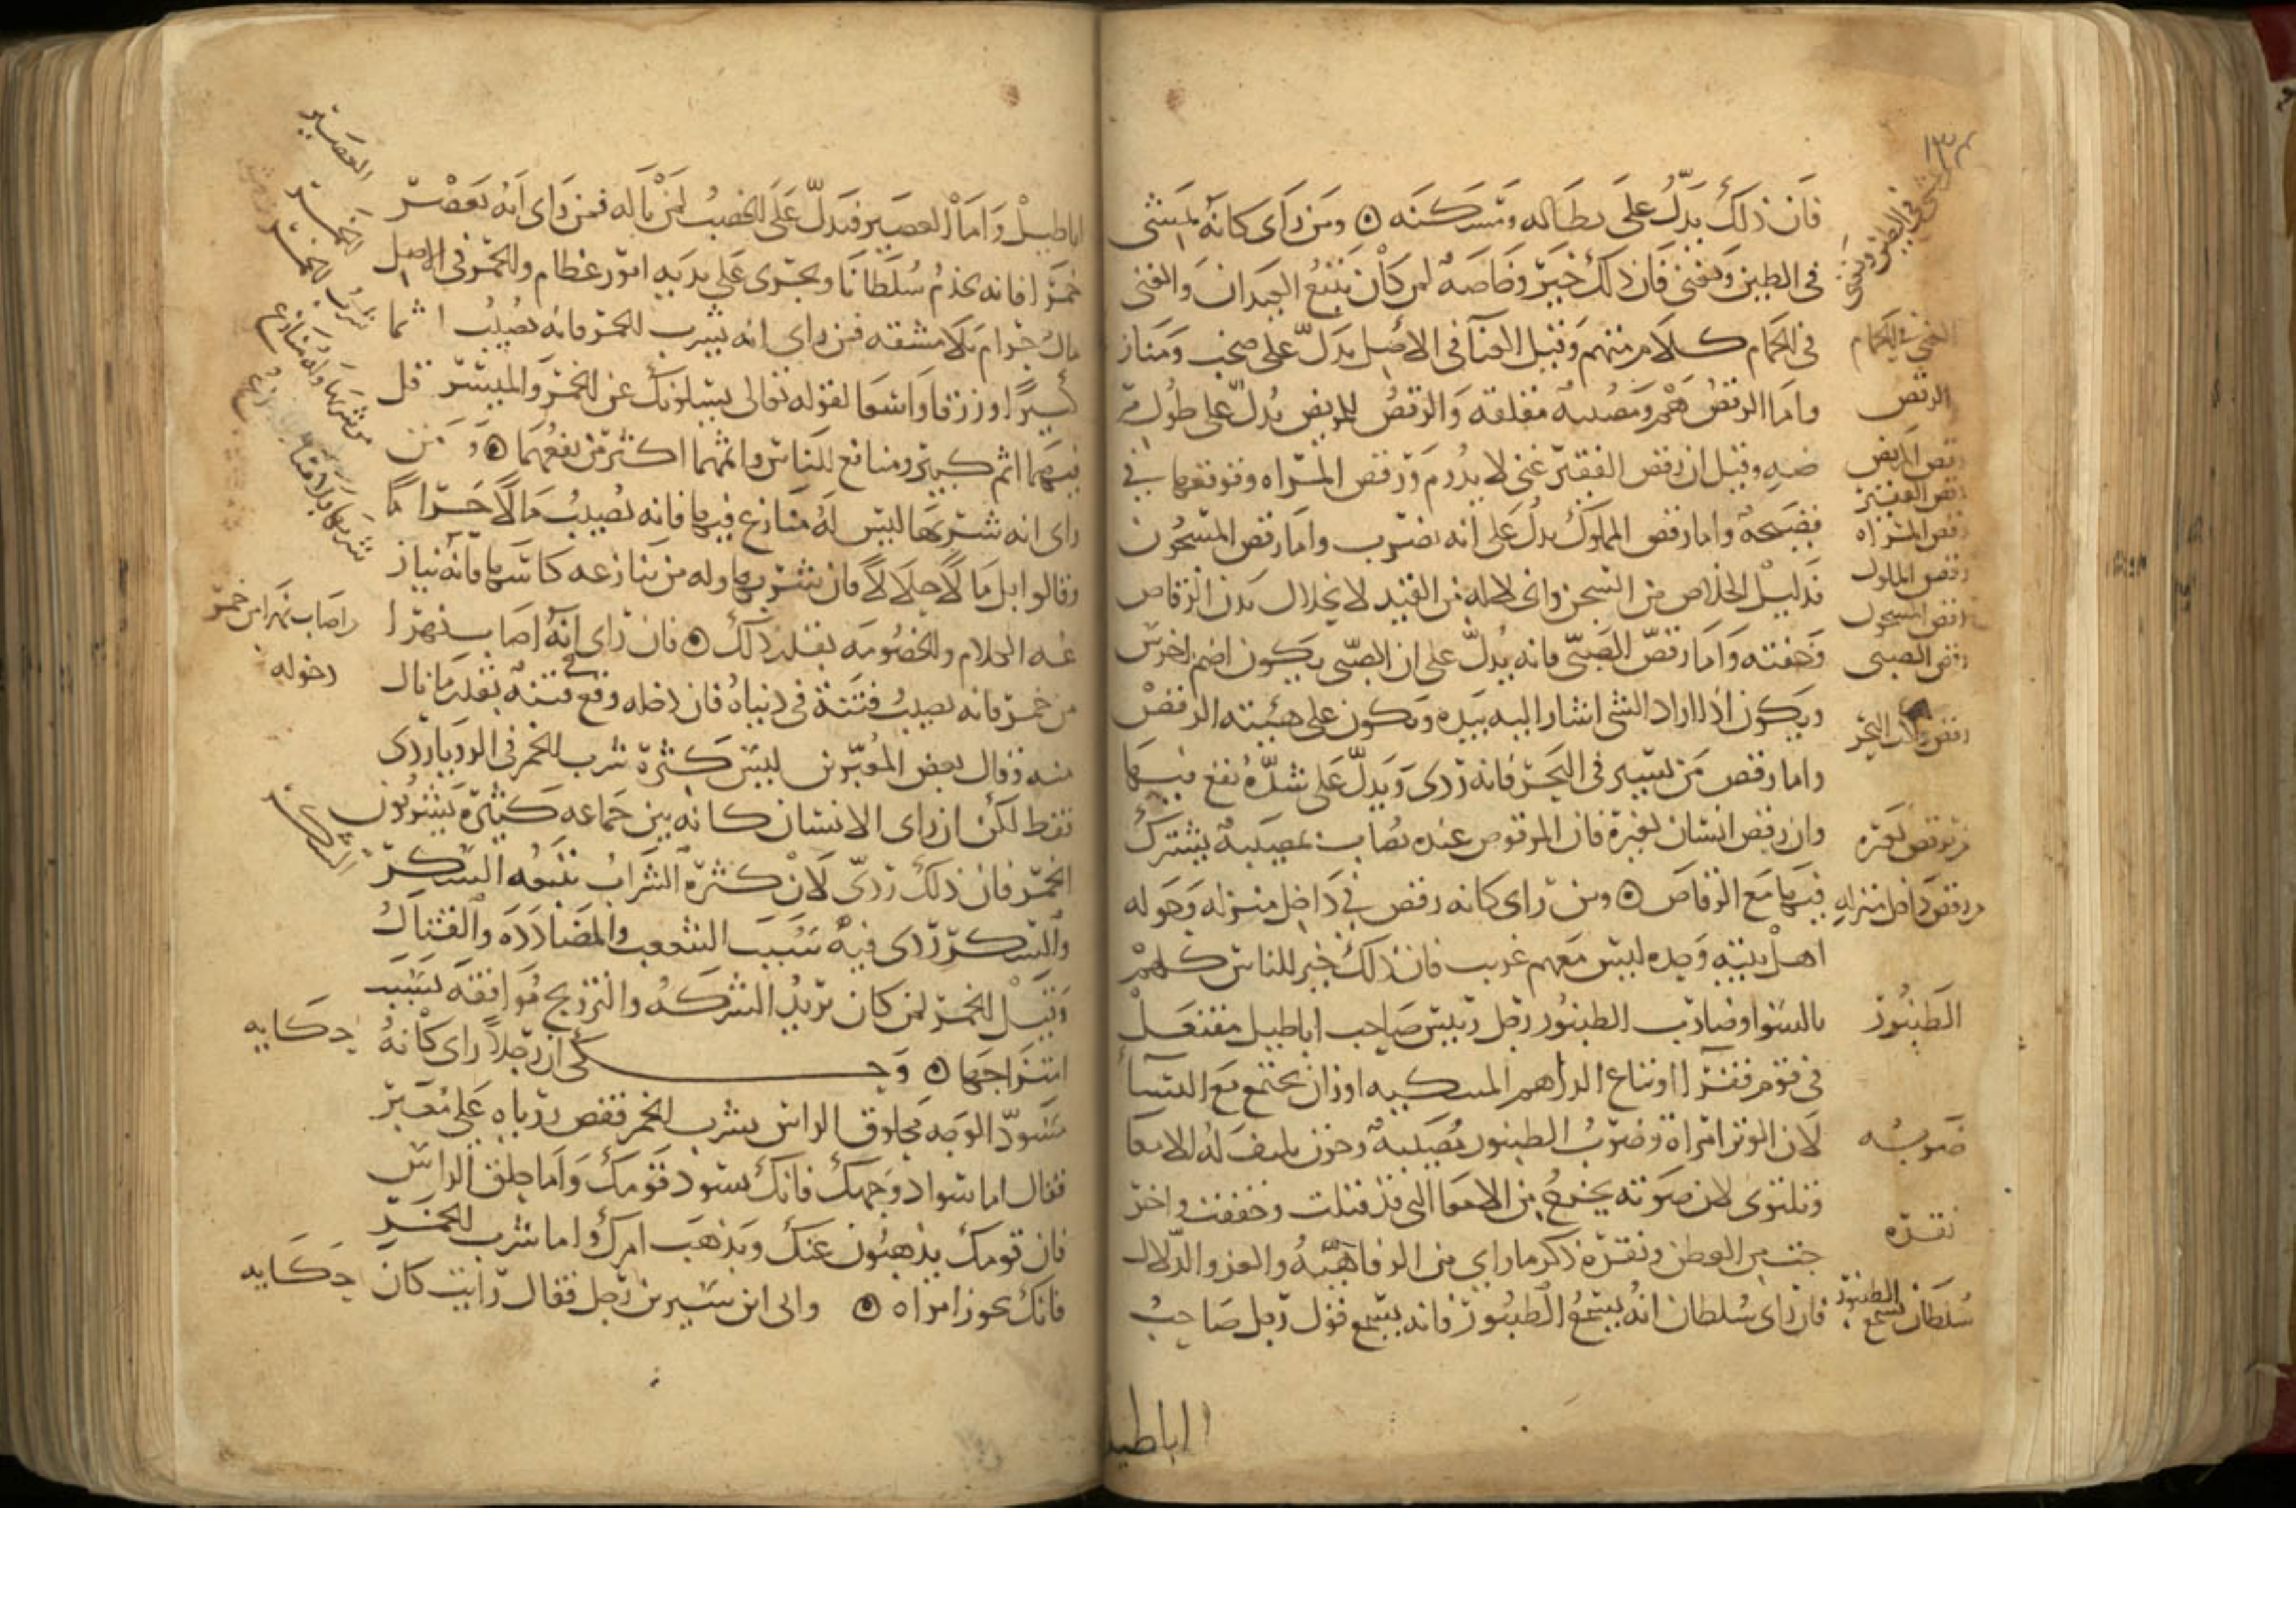 فان ذلك يدل على بطاله ومسكنه ۞ ومن راى كانه يمشى
فى الطين ويغنى فان ذلك خير وخاصه لمن كان يتبع العيدان والغنى
فى الحمام كلام متهم وقيل الغنا فى الاصل يدل على صخب ومناز
واما الرقص هم ومصيبه مقلقه والرقص للمريض يدل على طول مر
ضه وقيل ان رقص الفقير غنى لا يدوم ورقص المراه وقوعها فى
فضيحه واما رقص المملوك يدل على انه يضرب واما رقص المسجون
فدليل الخلاص من السجن وانحلاله من القيد لانحلال بدن الرقاص
وخفته واما رقص الصبى فانه يدل على ان الصبى يكون اصم اخرس
ويكون اذا اراد الشى اشار اليه بيده ويكون على هيئته الرقص
واما رقص من يسير فى البحر فانه ردى ويدل على شده يقع فيها
وان رقص انسان لغيره فان المرقوص عنده يصاب بمصيبة يشترك
فيها مع الرقاص ۞ ومن راى كانه رقص فى داخل منزله وحوله
اهل بيته وحده ليس معهم غريب فان ذلك خير للناس كلهم
بالسوا وضارب الطنبور رجل رييس صاحب اباطيل مفتعل
فى قوم فقرا او تباع الدراهم السكيه اوزان يجتمع مع النسا
لان الوتر امراة وضرب الطنبور مصيبة وحزن تلتف له الامعا
وتلتوى لان صوته يخرج من الامعا التى قد فتلت وخففت واخر
جت من الوطن ونقره ذكر ما راى من الرفاهية والعز والدلال
فان راى سلطان انه يسمع الطنبور فانه يسمع قول رجل صاحب
اباطيل
١٣
يمشى فى الطين ويغنى
الغنى فى الحمام
الرقص
رقص المريض
رقص الفقير
رقص المراه
رقص المملوك
رقص المسجون
رقص الصبى
رقص راكب البحر
من رقص لغيره
من رقص داخل منزله
الطنبور
ضربه
نقره
سلطان يسمع الطنبور
اباطيل واما العصير فيدل على الخصب لمن ناله فمن راى انه يعصر
خمرا فانه يخدم سلطانا ويجرى على يديه امور عظام والخمر فى الاصل
مال حرام بلا مشقه فمن راى انه يشرب الخمر فانه يصيب اثما
كبيرا ورزقا واسعا لقوله تعالى يسلونك عن الخمر والميسر قل
فيهما اثم كبير ومنافع للناس واثمهما اكثر من نفعهما ۞ ومن
راى انه شربها ليس له منازع فيها فانه يصيب مالا حراما
وقالوا بل مالا حلالا فان شربها وله من ينازعه كاسها فانه يناز
عه الكلام والخصومه بقدر ذلك ۞ فان راى انه اصاب نهرا
من خمر فانه يصيب فتنة فى دنياه فان دخله وقع فى فتنه بقدر ما نال
منه وقال بعض المعبرين ليس كثرة شرب الخمر فى الرويا ردى
فقط لكن ان راى الانسان كانه بين جماعه كثيرة يشربون
الخمر فان ذلك ردى لان كثرة الشراب يتبعه السكر
والسكر ردى فيه سبب الشعب والمضادده والقتال
وقيل الخمر لمن كان يريد الشركه والتزويج موافقه لسبب
امتزاجها ۞ وحكى ان رجلا راى كانه
مسود الوجه محلوق الراس يشرب الخمر فقص روياه على معبر
فقال اما سواد وجهك فانك تسود قومك واما حلق الراس
فان قومك يذهبون عنك ويذهب امرك واما شرب الخمر
فانك تحوز امراه ۞ واتى ابن سيرين رجل فقال رايت كان
العصير
الخمر
شرب الخمر
من شربها وله منازع
شربها بلا منازع
واصاب نهرا من خمر
دخوله
السكر
حكايه
حكايه